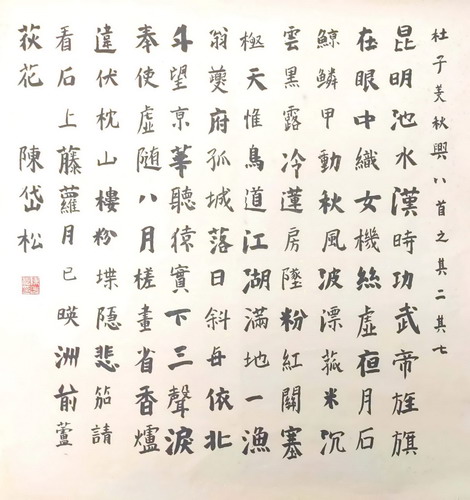 杜子美秋興八首之其二其七
昆明池水漢時功武帝旌旗
在眼中織女機絲虛夜月石
鯨鱗甲動秋風波漂菰米沉
雲黑露冷蓮房墜粉紅關塞
極天惟鳥道江湖滿地一漁
翁夔府孤城落日斜每依北
斗望京華聽猿實下三聲淚
奉使虛随八月槎畫省香爐
違伏枕山樓粉堞隱悲笳請
看石上藤蘿月已暎洲前蘆
荻花 陳岱松